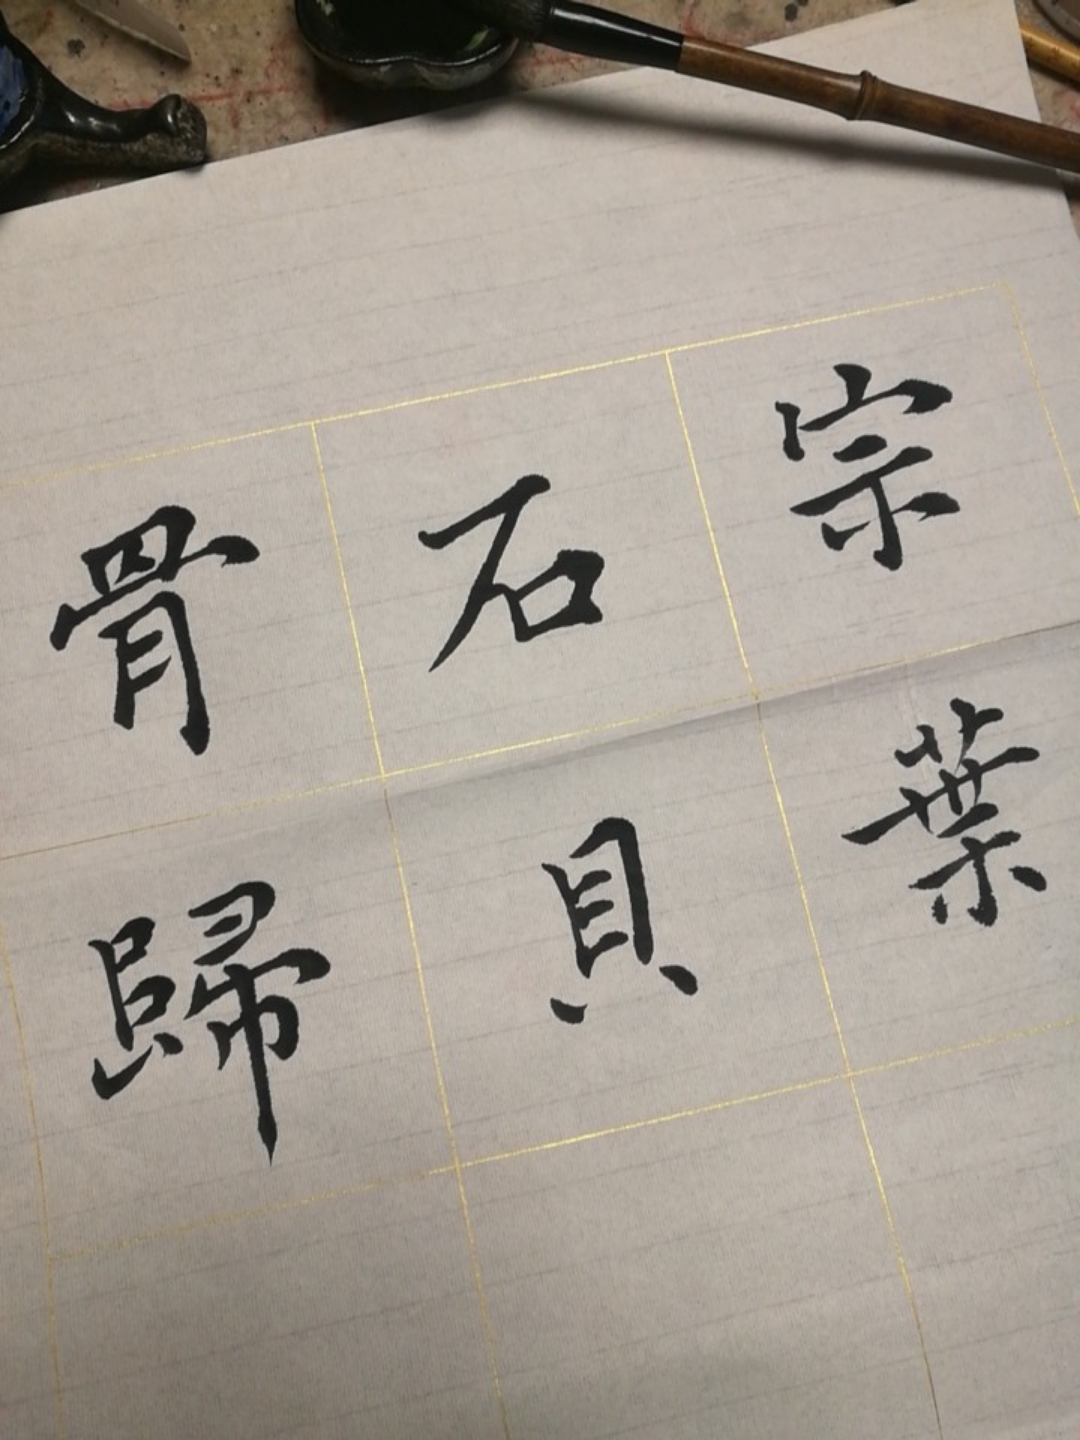 宗葉
石貝
骨歸